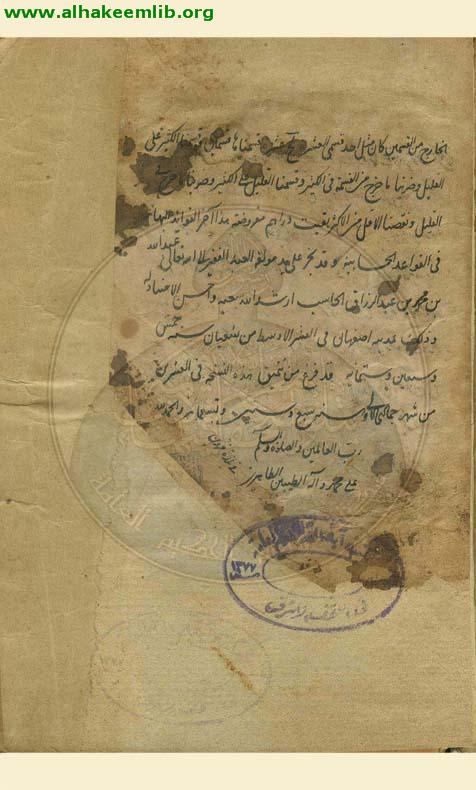 www.alhakeemlib.org
الخارج من القسمين كان مثل احد قسمى العشرة قسمناها قسمان الكثير على
القليل وضربنا ما خرج من القسمة فى الكثير وقسمنا القليل على الكثير وضربنا ما خرج فى
القليل ونقصنا الاقل من الاكثر بقيت دراهم معروضة هذا آخر الفوائد البهائية
فى القواعد الحسابية وقد نجز على يد مؤلفه العبد الفقير الى الله تعالى عبد الله
بن محمد بن عبد الرزاق الحاسب ارشد الله سعيه واحسن
وذلك بمدينة اصفهان فى العشر الاوسط من شعبان سنة خمس
وسبعين وستمائة قد فرغ من تنميق هذه النسخة فى العشرين
من شهر جمادى الاولى سنة سبع وستين وتسعمائة والحمد لله
رب العالمين والصلوة والسلم
على محمد وآله الطيبين الطاهرين
١٣٧٧